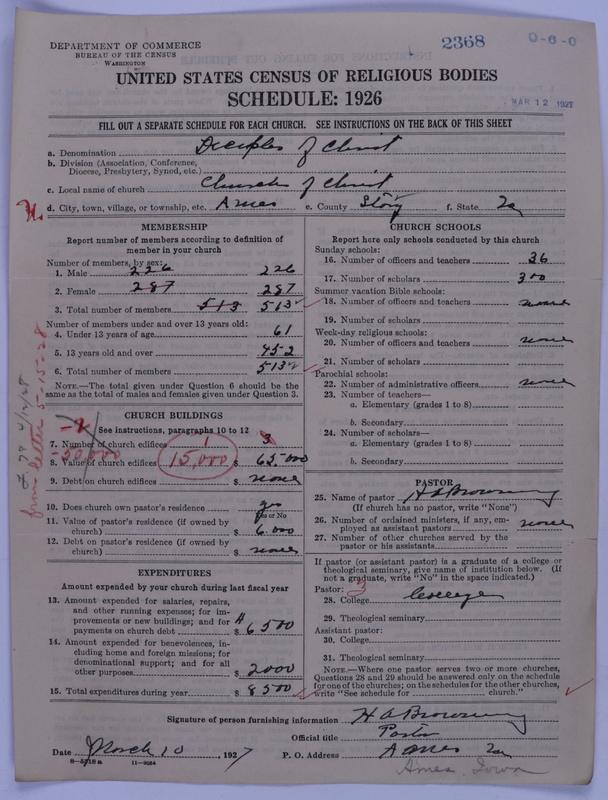 DEPARTMENT OF COMMERCE
BUREAU OF THE CENSUS
WASHINGTON
2368
0-6-0
UNITED STATES CENSUS OF RELIGIOUS BODIES
SCHEDULE: 1926
MAR 12 1927
FILL OUT A SEPARATE SCHEDULE FOR EACH CHURCH. SEE INSTRUCTIONS ON THE BACK OF THIS SHEET
a. Denomination Disciples of Christ
b. Division (Association, Conference, Diocese, Presbytery, Synod, etc.)
c. Local name of church Church of Christ
d. City, town, village, or township, etc. Ames e. County Story f. State Ia
MEMBERSHIP
Report number of members according to definition of
member in your church
Number of members, by sex:
1. Male 226 226
2. Female 287 287
3. Total number of members 513 513
Number of members under and over 13 years old:
4. Under 13 years of age 61
5. 13 years old and over 452
6. Total number of members 513
NOTE.—The total given under Question 6 should be the
same as the total of males and females given under Question 3.
CHURCH BUILDINGS
See instructions, paragraphs 10 to 12
7. Number of church edifices 1 3
8. Value of church edifices 15,000 $ 65,000
-50,000
from letter 5-15-28
9. Debt on church edifices $ none
10. Does church own pastor's residence yes
Yes or No
11. Value of pastor's residence (if owned by
church) $ 6,000
12. Debt on pastor's residence (if owned by
church) $ none
EXPENDITURES
Amount expended by your church during last fiscal year
13. Amount expended for salaries, repairs,
and other running expenses; for im-
provements or new buildings; and for
payments on church debt $ 6500
14. Amount expended for benevolences, in-
cluding home and foreign missions; for
denominational support; and for all
other purposes $ 2000
15. Total expenditures during year $ 8500
CHURCH SCHOOLS
Report here only schools conducted by this church
Sunday schools:
16. Number of officers and teachers 36
17. Number of scholars 300
Summer vacation Bible schools:
18. Number of officers and teachers none
19. Number of scholars
Week-day religious schools:
20. Number of officers and teachers none
21. Number of scholars
Parochial schools:
22. Number of administrative officers none
23. Number of teachers—
a. Elementary (grades 1 to 8)
b. Secondary
24. Number of scholars—
a. Elementary (grades 1 to 8)
b. Secondary
PASTOR
25. Name of pastor H A Browning
(If church has no pastor, write "None")
26. Number of ordained ministers, if any, em-
ployed as assistant pastors none
27. Number of other churches served by the
pastor or his assistants
If pastor (or assistant pastor) is a graduate of a college or
theological seminary, give name of institution below. (If
not a graduate, write "No" in the space indicated.)
Pastor: 3
28. College College
29. Theological seminary
Assistant pastor:
30. College
31. Theological seminary
NOTE.—Where one pastor serves two or more churches,
Questions 28 and 29 should be answered only on the schedule
for one of the churches; on the schedules for the other churches,
write "See schedule for church."
Signature of person furnishing information H A Browning
Official title Pastor
Date March 10, 1927 P. O. Address Ames Ia
8-5318a 11-9024
Ames, Iowa